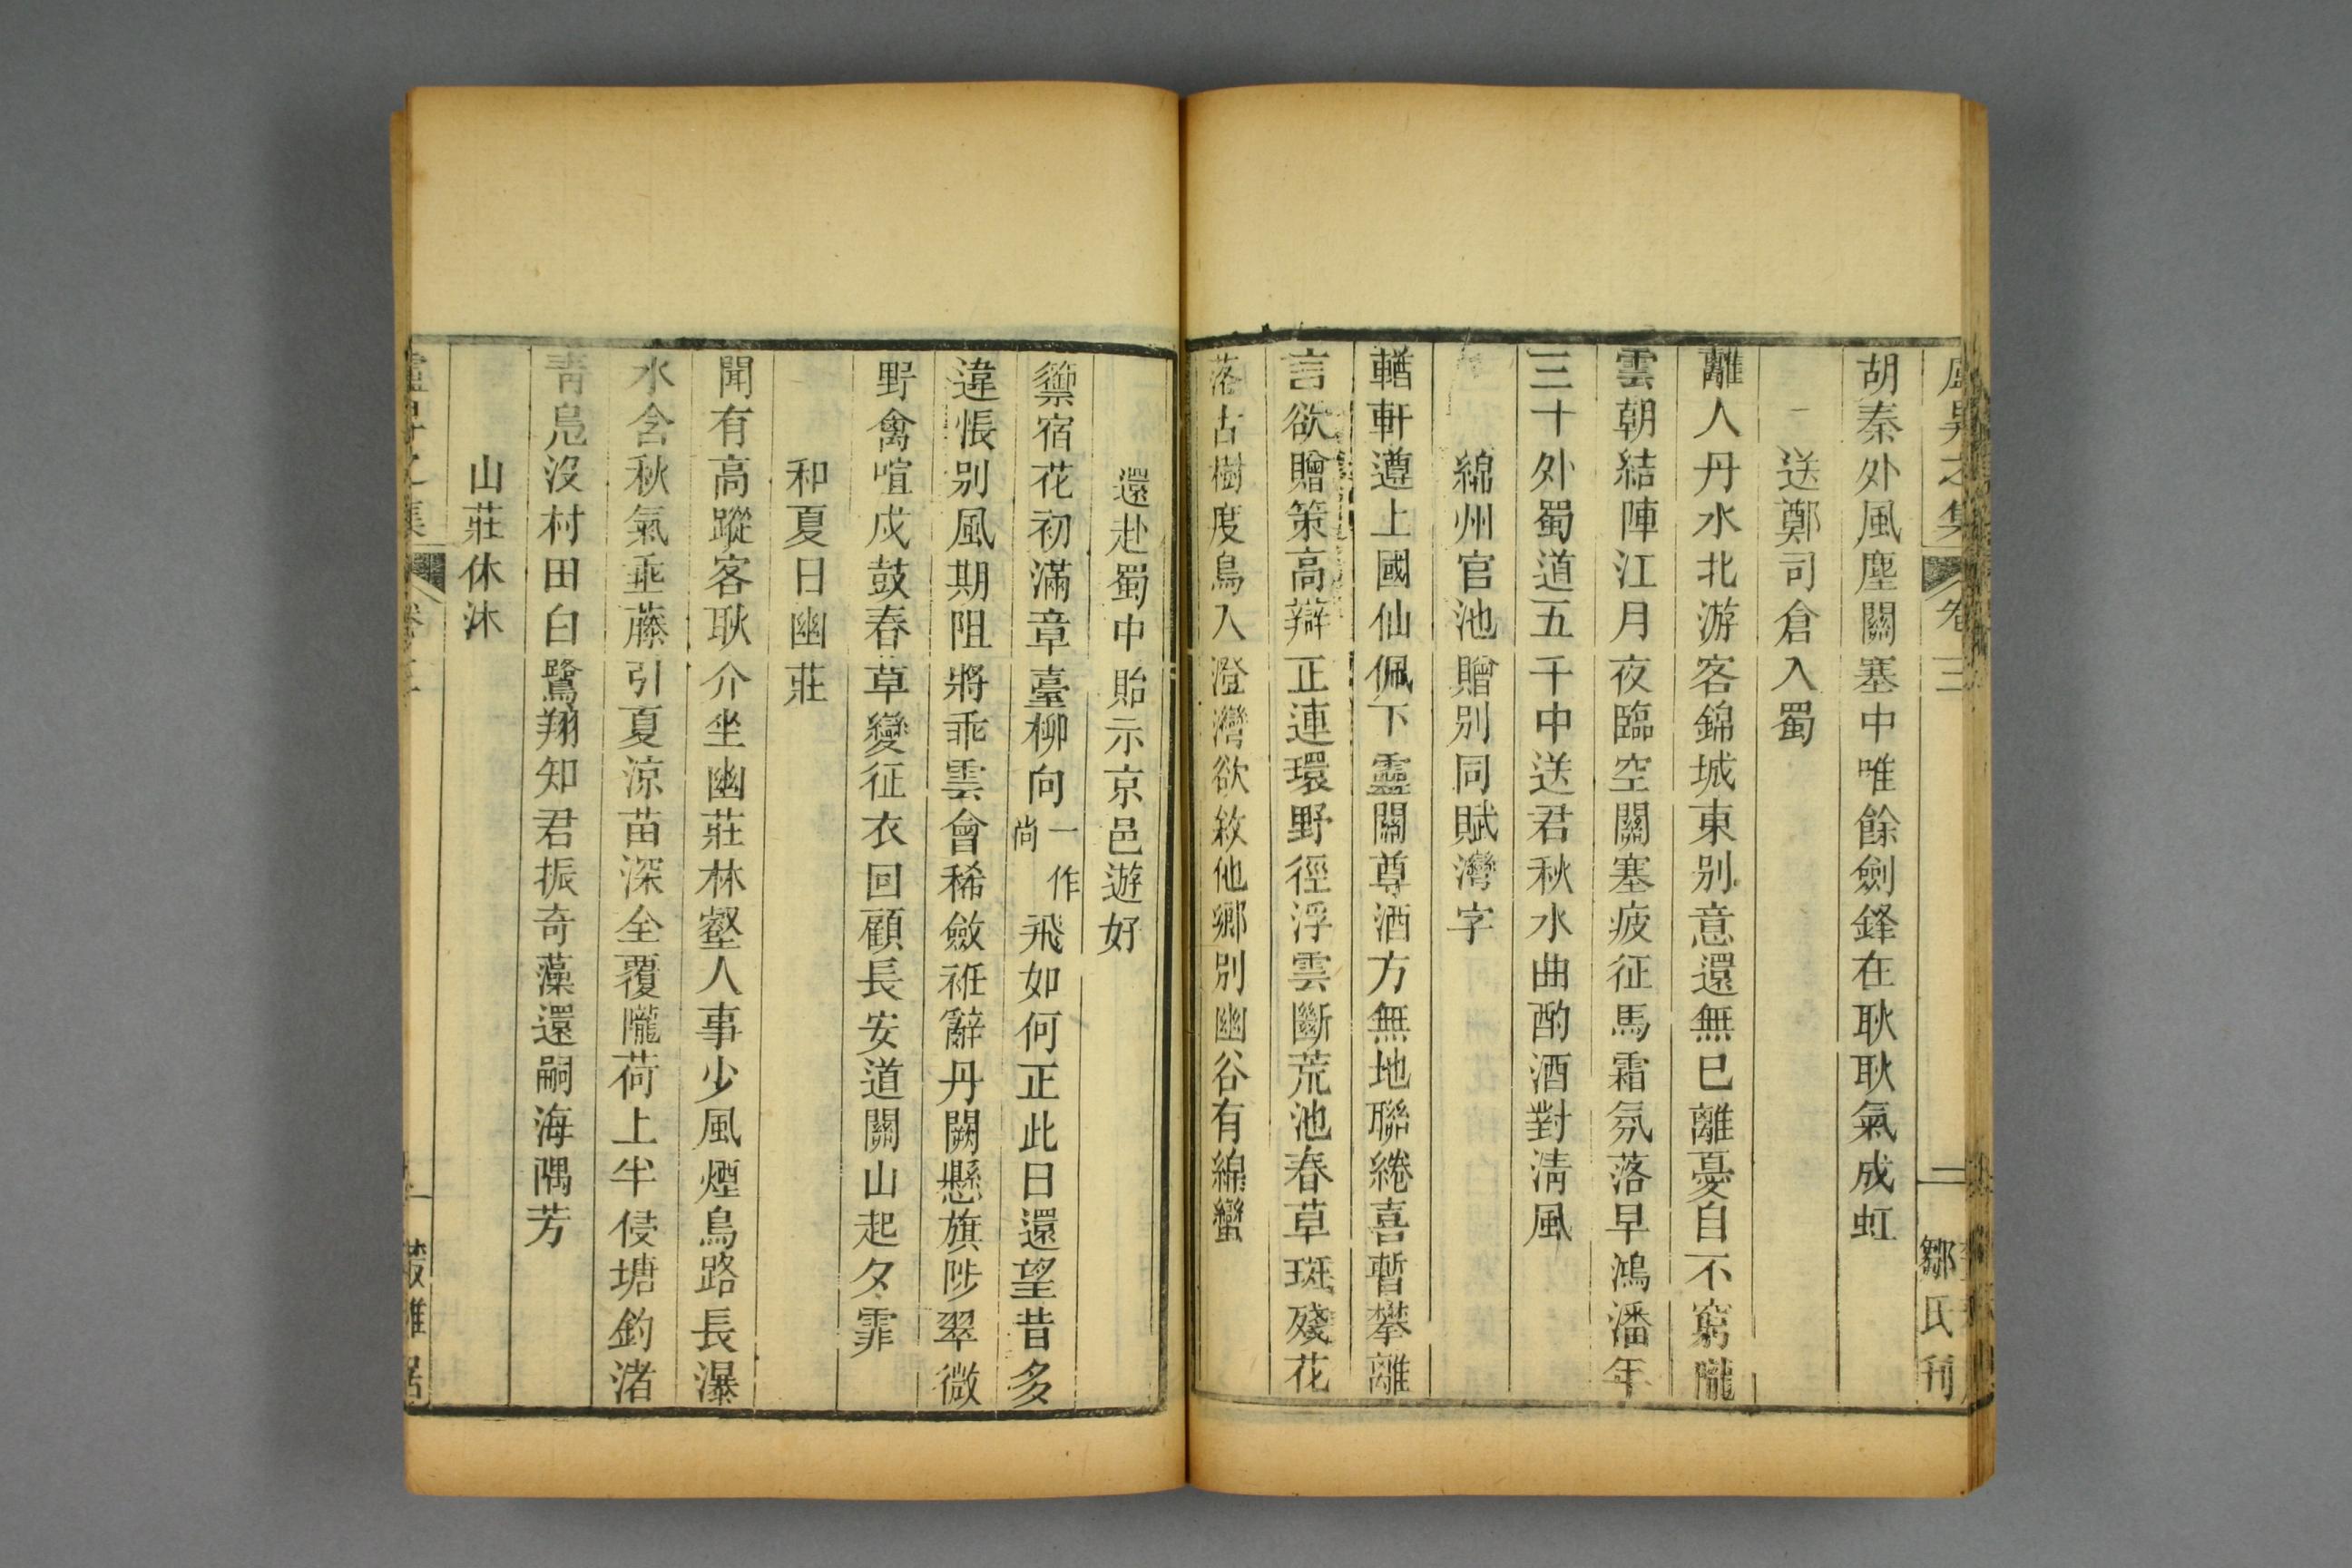 盧昇之集 卷三 二 鄒氏刊
胡秦外風塵關塞中唯餘劍鋒在耿耿氣成虹
送鄭司倉入蜀
離人丹水北游客錦城東别意還無已離憂自不窮隴
雲朝結陣江月夜臨空關塞疲征馬霜氛落早鴻潘年
三十外蜀道五千中送君秋水曲酌酒對淸風
綿州官池贈別同賦灣字
輶軒遵上國仙佩下靈關尊酒方無地聯綣喜暫攀離
言欲贈策高辯正連環野徑浮雲斷荒池春草斑殘花
落古樹度鳥入澄灣欲敘他鄕別幽谷有綿蠻
還赴蜀中貽示京邑遊好
籞宿花初滿章臺柳向一作尚飛如何正此日還望昔多
違悵别風期阻將乖雲會稀斂衽辭丹闕懸旗陟翠微
野禽喧戍鼓春草變征衣回顧長安道關山起夕霏
和夏日幽莊
聞有高蹤客耿介坐幽莊林壑人事少風煙鳥路長瀑
水含秋氣垂藤引夏涼苗深全覆隴荷上半侵塘釣渚
靑鳧没村田白鷺翔知君振奇藻還嗣海隅芳
山莊休沐